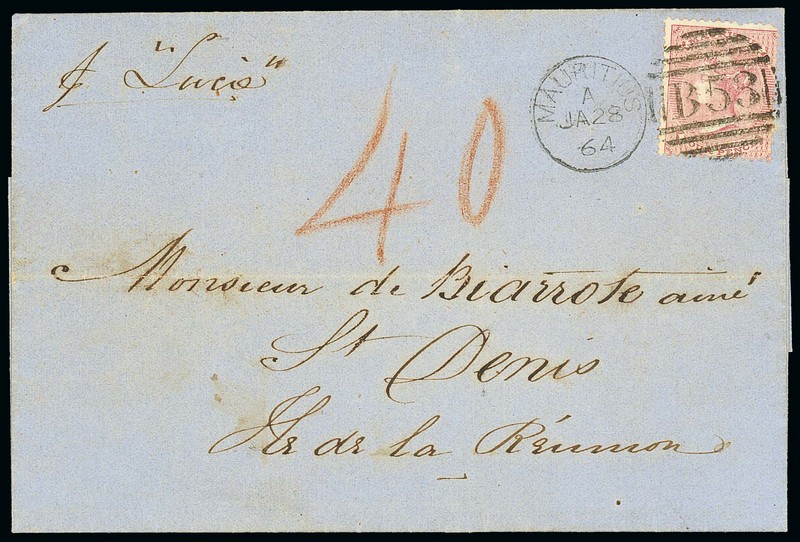 p "Lucie"
MAURITIUS
A
JA 28
64
B53
40
Monsieur de Biarrote ainé
St Denis
Ile de la Réunion